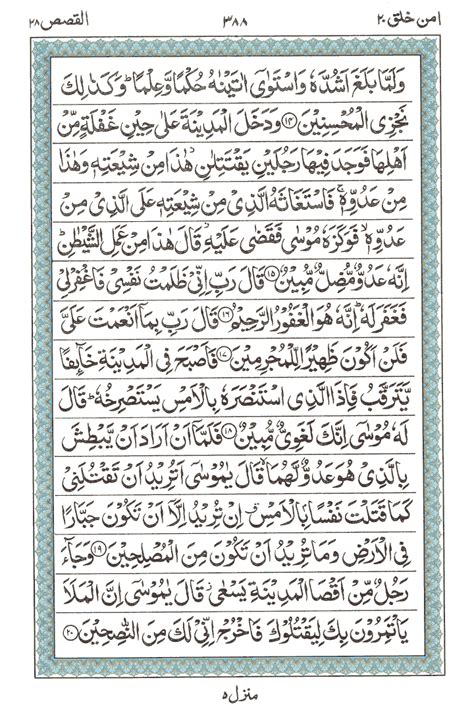 امن خلق ۲۰ ۳۸۸ القصص ۲۸
وَلَمَّا بَلَغَ اَشُدَّهٗ وَاسْتَوٰٓى اٰتَيْنٰهُ حُكْمًا وَّعِلْمًا ؕ وَكَذٰلِكَ
نَجْزِى الْمُحْسِنِيْنَ ۝۱۴ وَدَخَلَ الْمَدِيْنَةَ عَلٰى حِيْنِ غَفْلَةٍ مِّنْ
اَهْلِهَا فَوَجَدَ فِيْهَا رَجُلَيْنِ يَقْتَتِلٰنِ ؗ هٰذَا مِنْ شِيْعَتِهٖ وَهٰذَا
مِنْ عَدُوِّهٖ ۚ فَاسْتَغَاثَهُ الَّذِىْ مِنْ شِيْعَتِهٖ عَلَى الَّذِىْ مِنْ
عَدُوِّهٖ ۙ فَوَكَزَهٗ مُوْسٰى فَقَضٰى عَلَيْهِ ؗ قَالَ هٰذَا مِنْ عَمَلِ الشَّيْطٰنِ ؕ
اِنَّهٗ عَدُوٌّ مُّضِلٌّ مُّبِيْنٌ ۝۱۵ قَالَ رَبِّ اِنِّىْ ظَلَمْتُ نَفْسِىْ فَاغْفِرْ لِىْ
فَغَفَرَ لَهٗ ؕ اِنَّهٗ هُوَ الْغَفُوْرُ الرَّحِيْمُ ۝۱۶ قَالَ رَبِّ بِمَاۤ اَنْعَمْتَ عَلَىَّ
فَلَنْ اَكُوْنَ ظَهِيْرًا لِّلْمُجْرِمِيْنَ ۝۱۷ فَاَصْبَحَ فِى الْمَدِيْنَةِ خَآئِفًا
يَّتَرَقَّبُ فَاِذَا الَّذِى اسْتَنْصَرَهٗ بِالْاَمْسِ يَسْتَصْرِخُهٗ ؕ قَالَ
لَهٗ مُوْسٰٓى اِنَّكَ لَغَوِىٌّ مُّبِيْنٌ ۝۱۸ فَلَمَّاۤ اَنْ اَرَادَ اَنْ يَّبْطِشَ
بِالَّذِىْ هُوَ عَدُوٌّ لَّهُمَا ۙ قَالَ يٰمُوْسٰٓى اَتُرِيْدُ اَنْ تَقْتُلَنِىْ
كَمَا قَتَلْتَ نَفْسًۢا بِالْاَمْسِ ۖ اِنْ تُرِيْدُ اِلَّاۤ اَنْ تَكُوْنَ جَبَّارًا
فِى الْاَرْضِ وَمَا تُرِيْدُ اَنْ تَكُوْنَ مِنَ الْمُصْلِحِيْنَ ۝۱۹ وَجَآءَ
رَجُلٌ مِّنْ اَقْصَا الْمَدِيْنَةِ يَسْعٰى ؗ قَالَ يٰمُوْسٰٓى اِنَّ الْمَلَاَ
يَاْتَمِرُوْنَ بِكَ لِيَقْتُلُوْكَ فَاخْرُجْ اِنِّىْ لَكَ مِنَ النّٰصِحِيْنَ ۝۲۰
منزل ۵